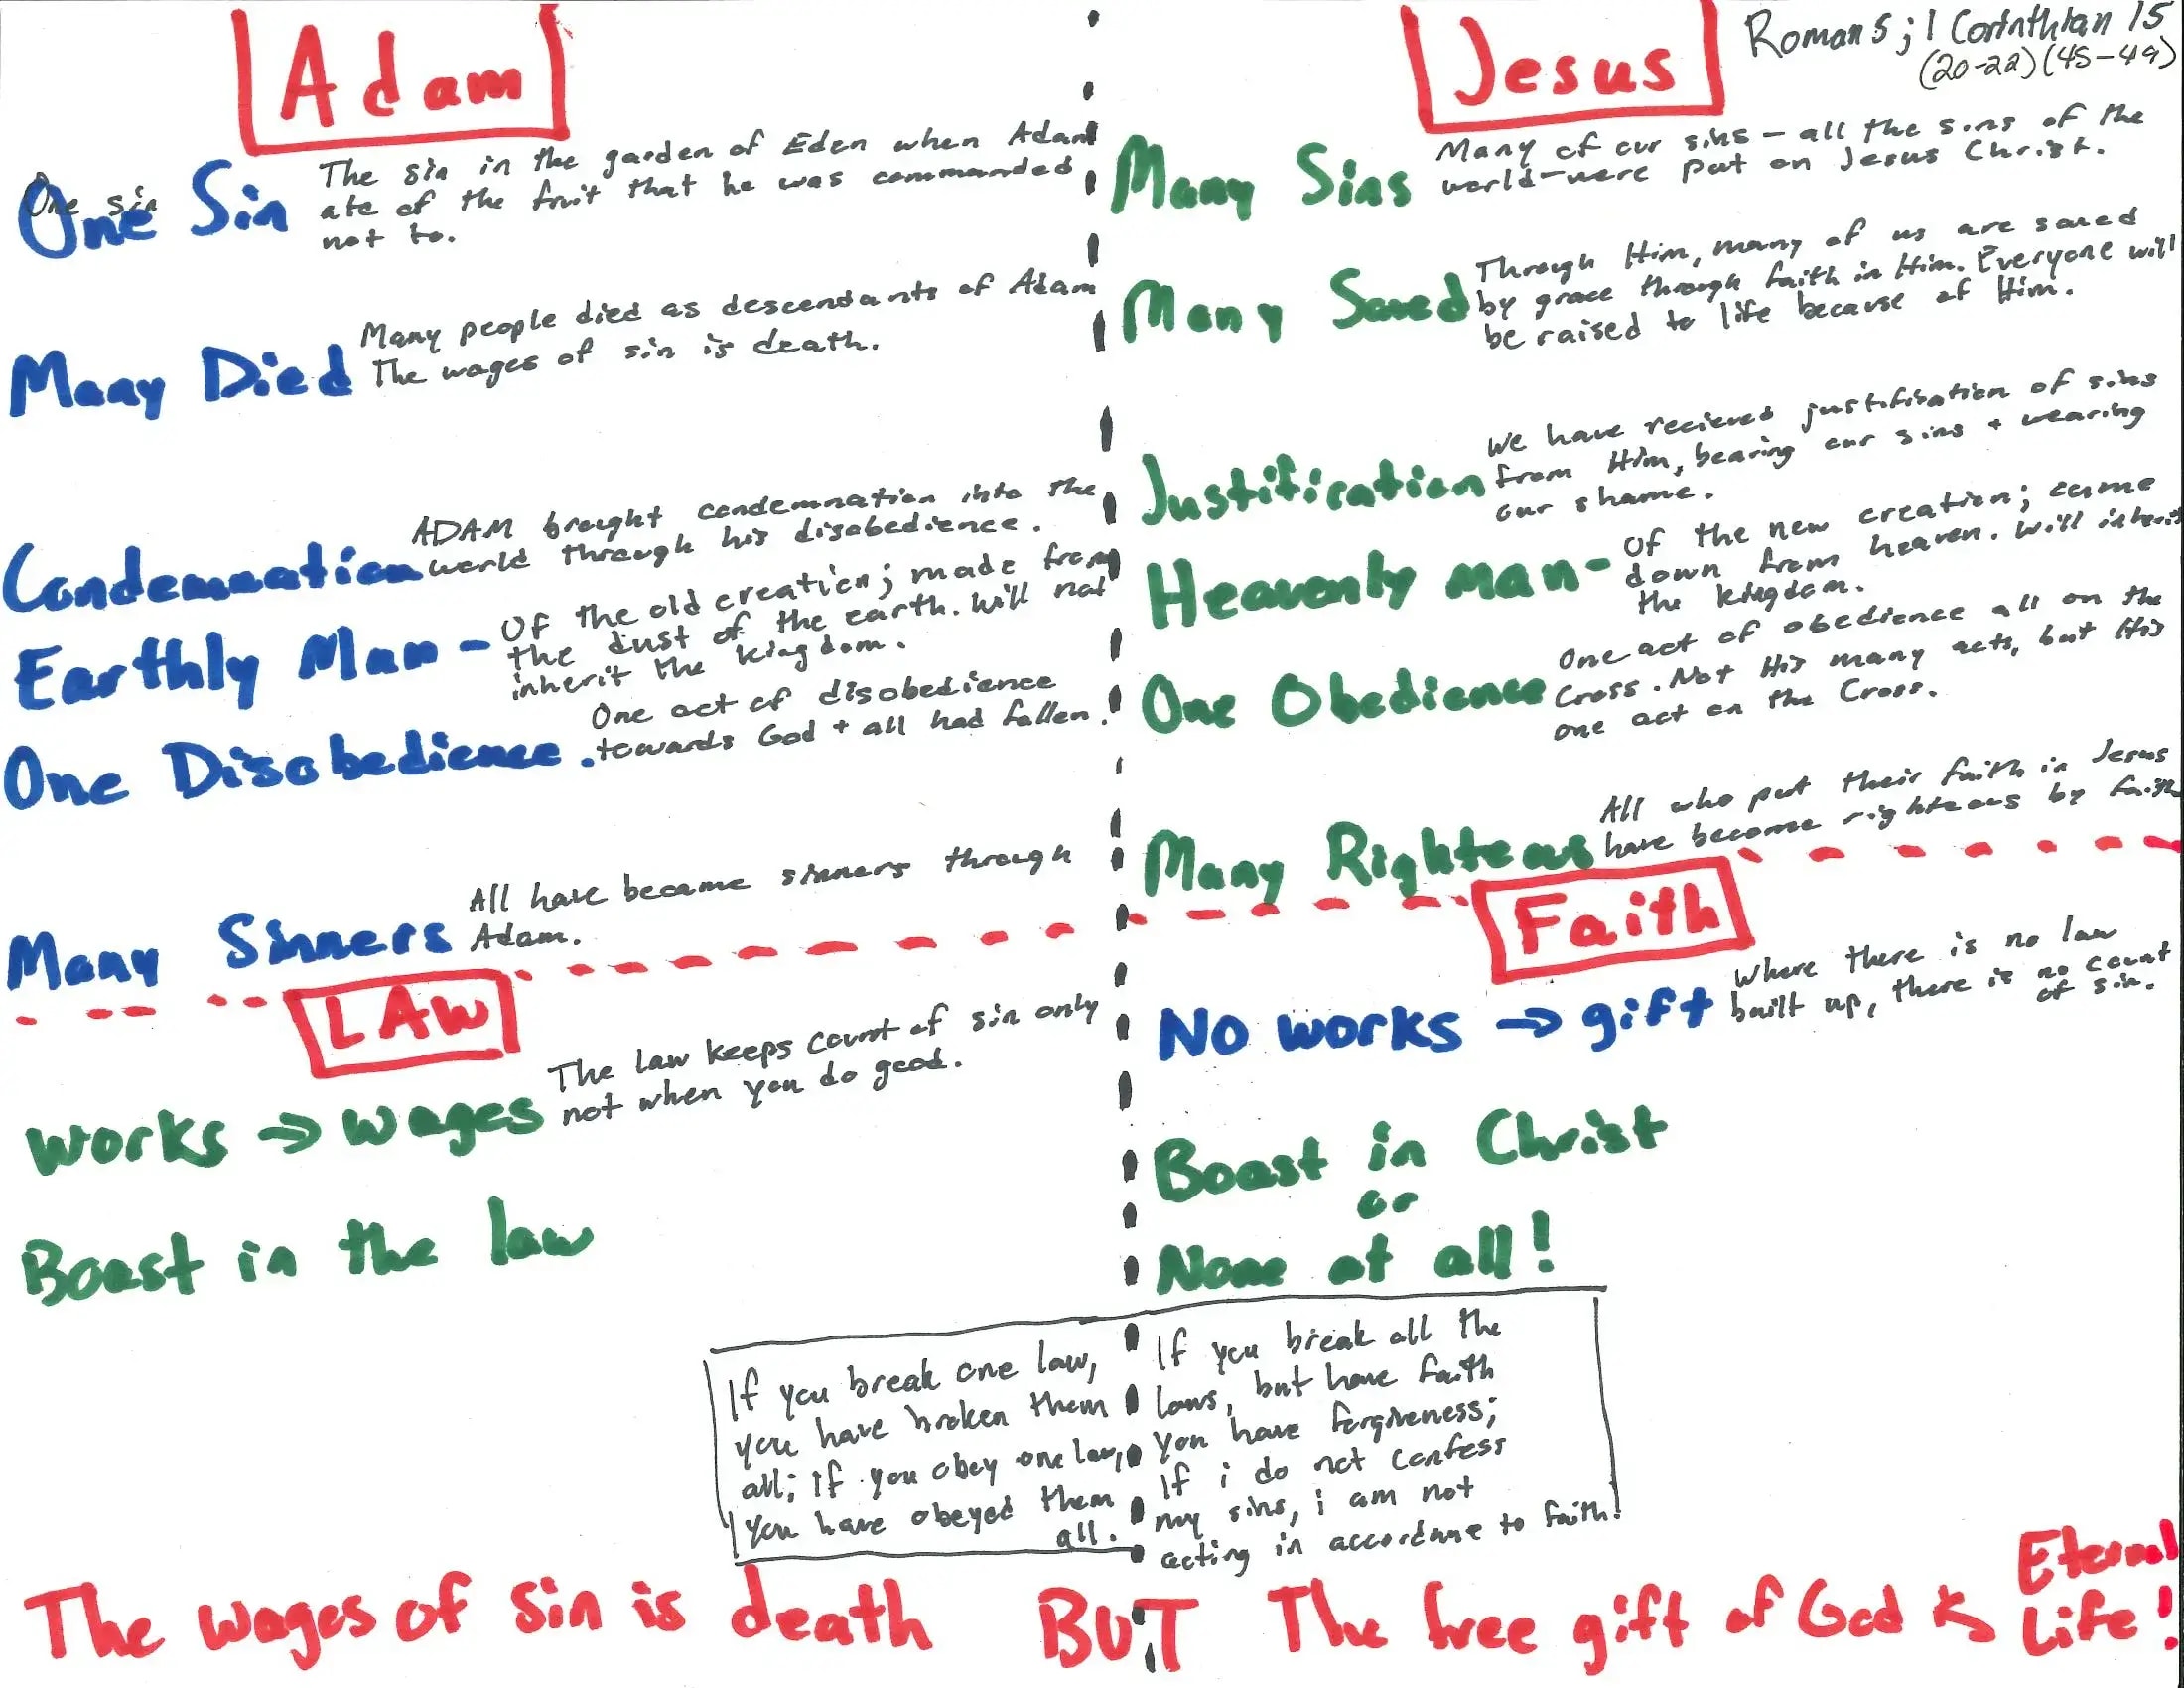 Adam
One Sin
One sin
The sin in the garden of Eden when Adam
ate of the fruit that he was commanded
not to.
Many Died
Many people died as descendants of Adam
The wages of sin is death.
Condemnation
ADAM brought condemnation into the
world through his disobedience.
Earthly Man -
Of the old creation; made from
the dust of the earth. Will not
inherit the kingdom.
One Disobedience.
One act of disobedience
towards God + all had fallen.
Many Sinners
All have became sinners through
Adam.
LAW
Works → Wages
The law keeps count of sin only
not when you do good.
Boast in the law
Jesus
Roman 5; 1 Corinthian 15
(20-22) (45-49)
Many Sins
Many of our sins - all the sins of the
world-were put on Jesus Christ.
Many Saved
Through Him, many of us are saved
by grace through faith in Him. Everyone will
be raised to life because of Him.
Justification
We have recieved justification of sins
from Him, bearing our sins + wearing
our shame.
Heavenly Man-
Of the new creation; came
down from heaven. Will inherit
the kingdom.
One Obedience
One act of obedience all on the
Cross. Not His many acts, but His
one act on the Cross.
Many Righteous
All who put their faith in Jesus
have become righteous by faith
Faith
No works → gift
Where there is no law
built up, there is no count
of sin.
Boast in Christ
or
None at all!
If you break one law,
you have broken them
all; if you obey one law,
you have obeyed them
all.
If you break all the
laws, but have faith
you have forgiveness;
If i do not confess
my sins, i am not
acting in accordance to faith!
The wages of sin is death BUT The free gift of God is
Eternal
Life!